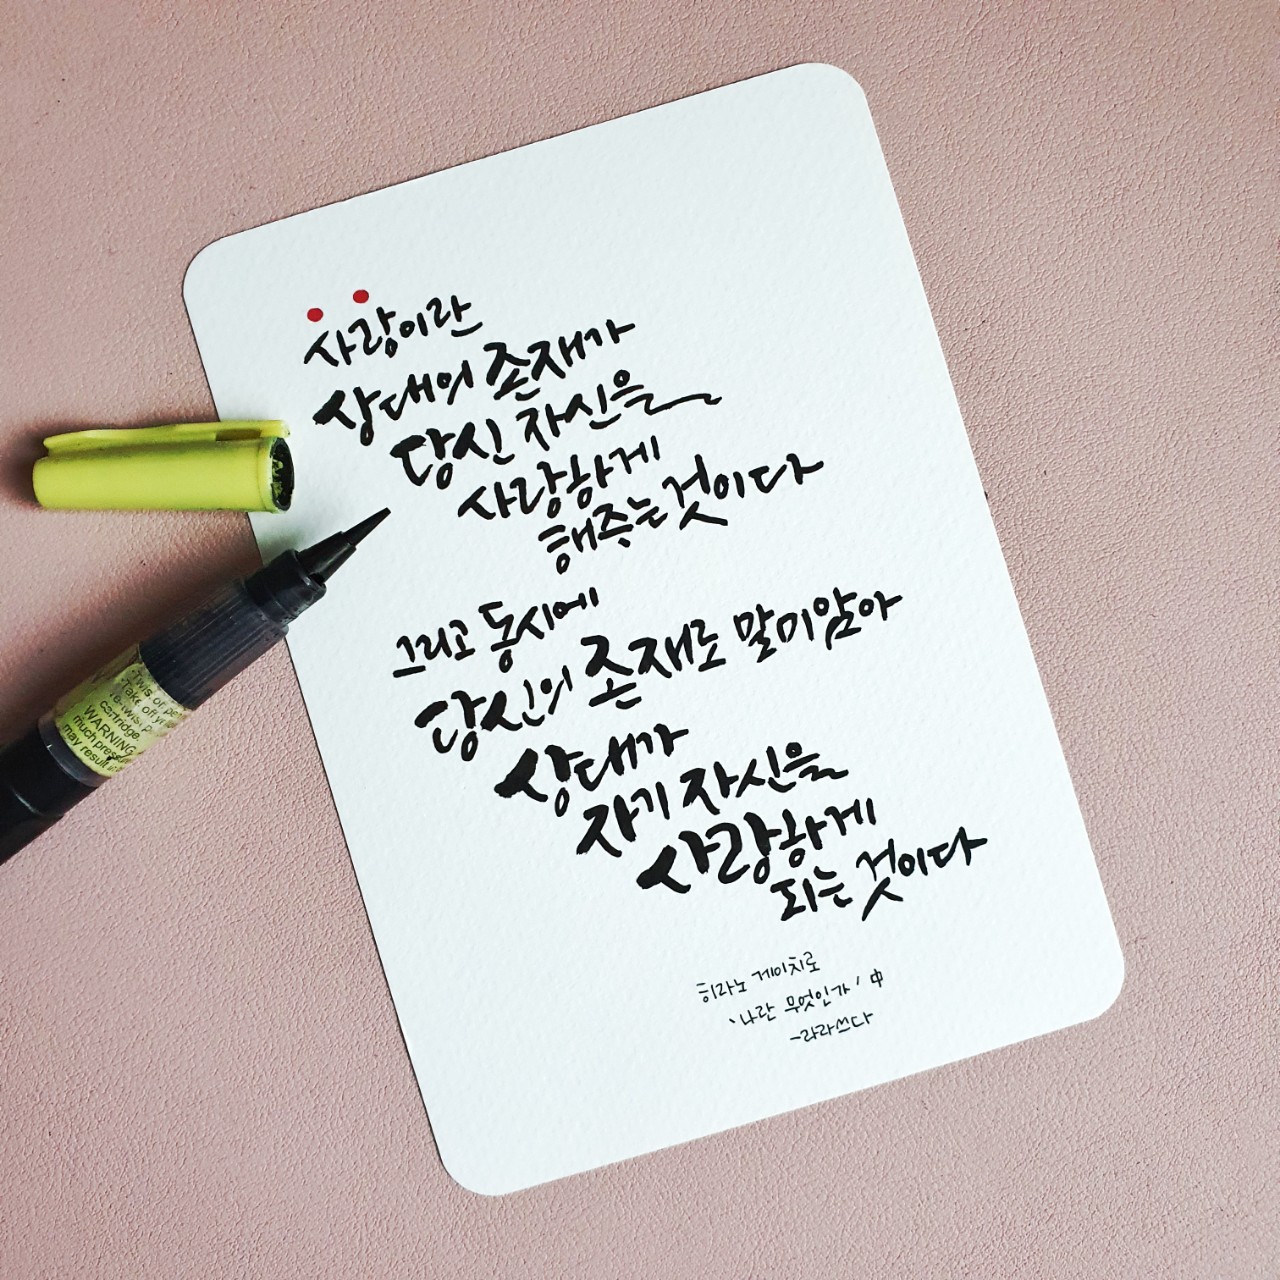 사랑이란
상대의 존재가
당신 자신을
사랑하게
해주는것이다
그리고 동시에
당신의 존재로 말미암아
상대가
자기 자신을
사랑하게
되는 것이다
히라노 게이치로
'나란 무엇인가' 中
-라라쓰다
Take off
cartridge.
WARNING
much pressure
may result